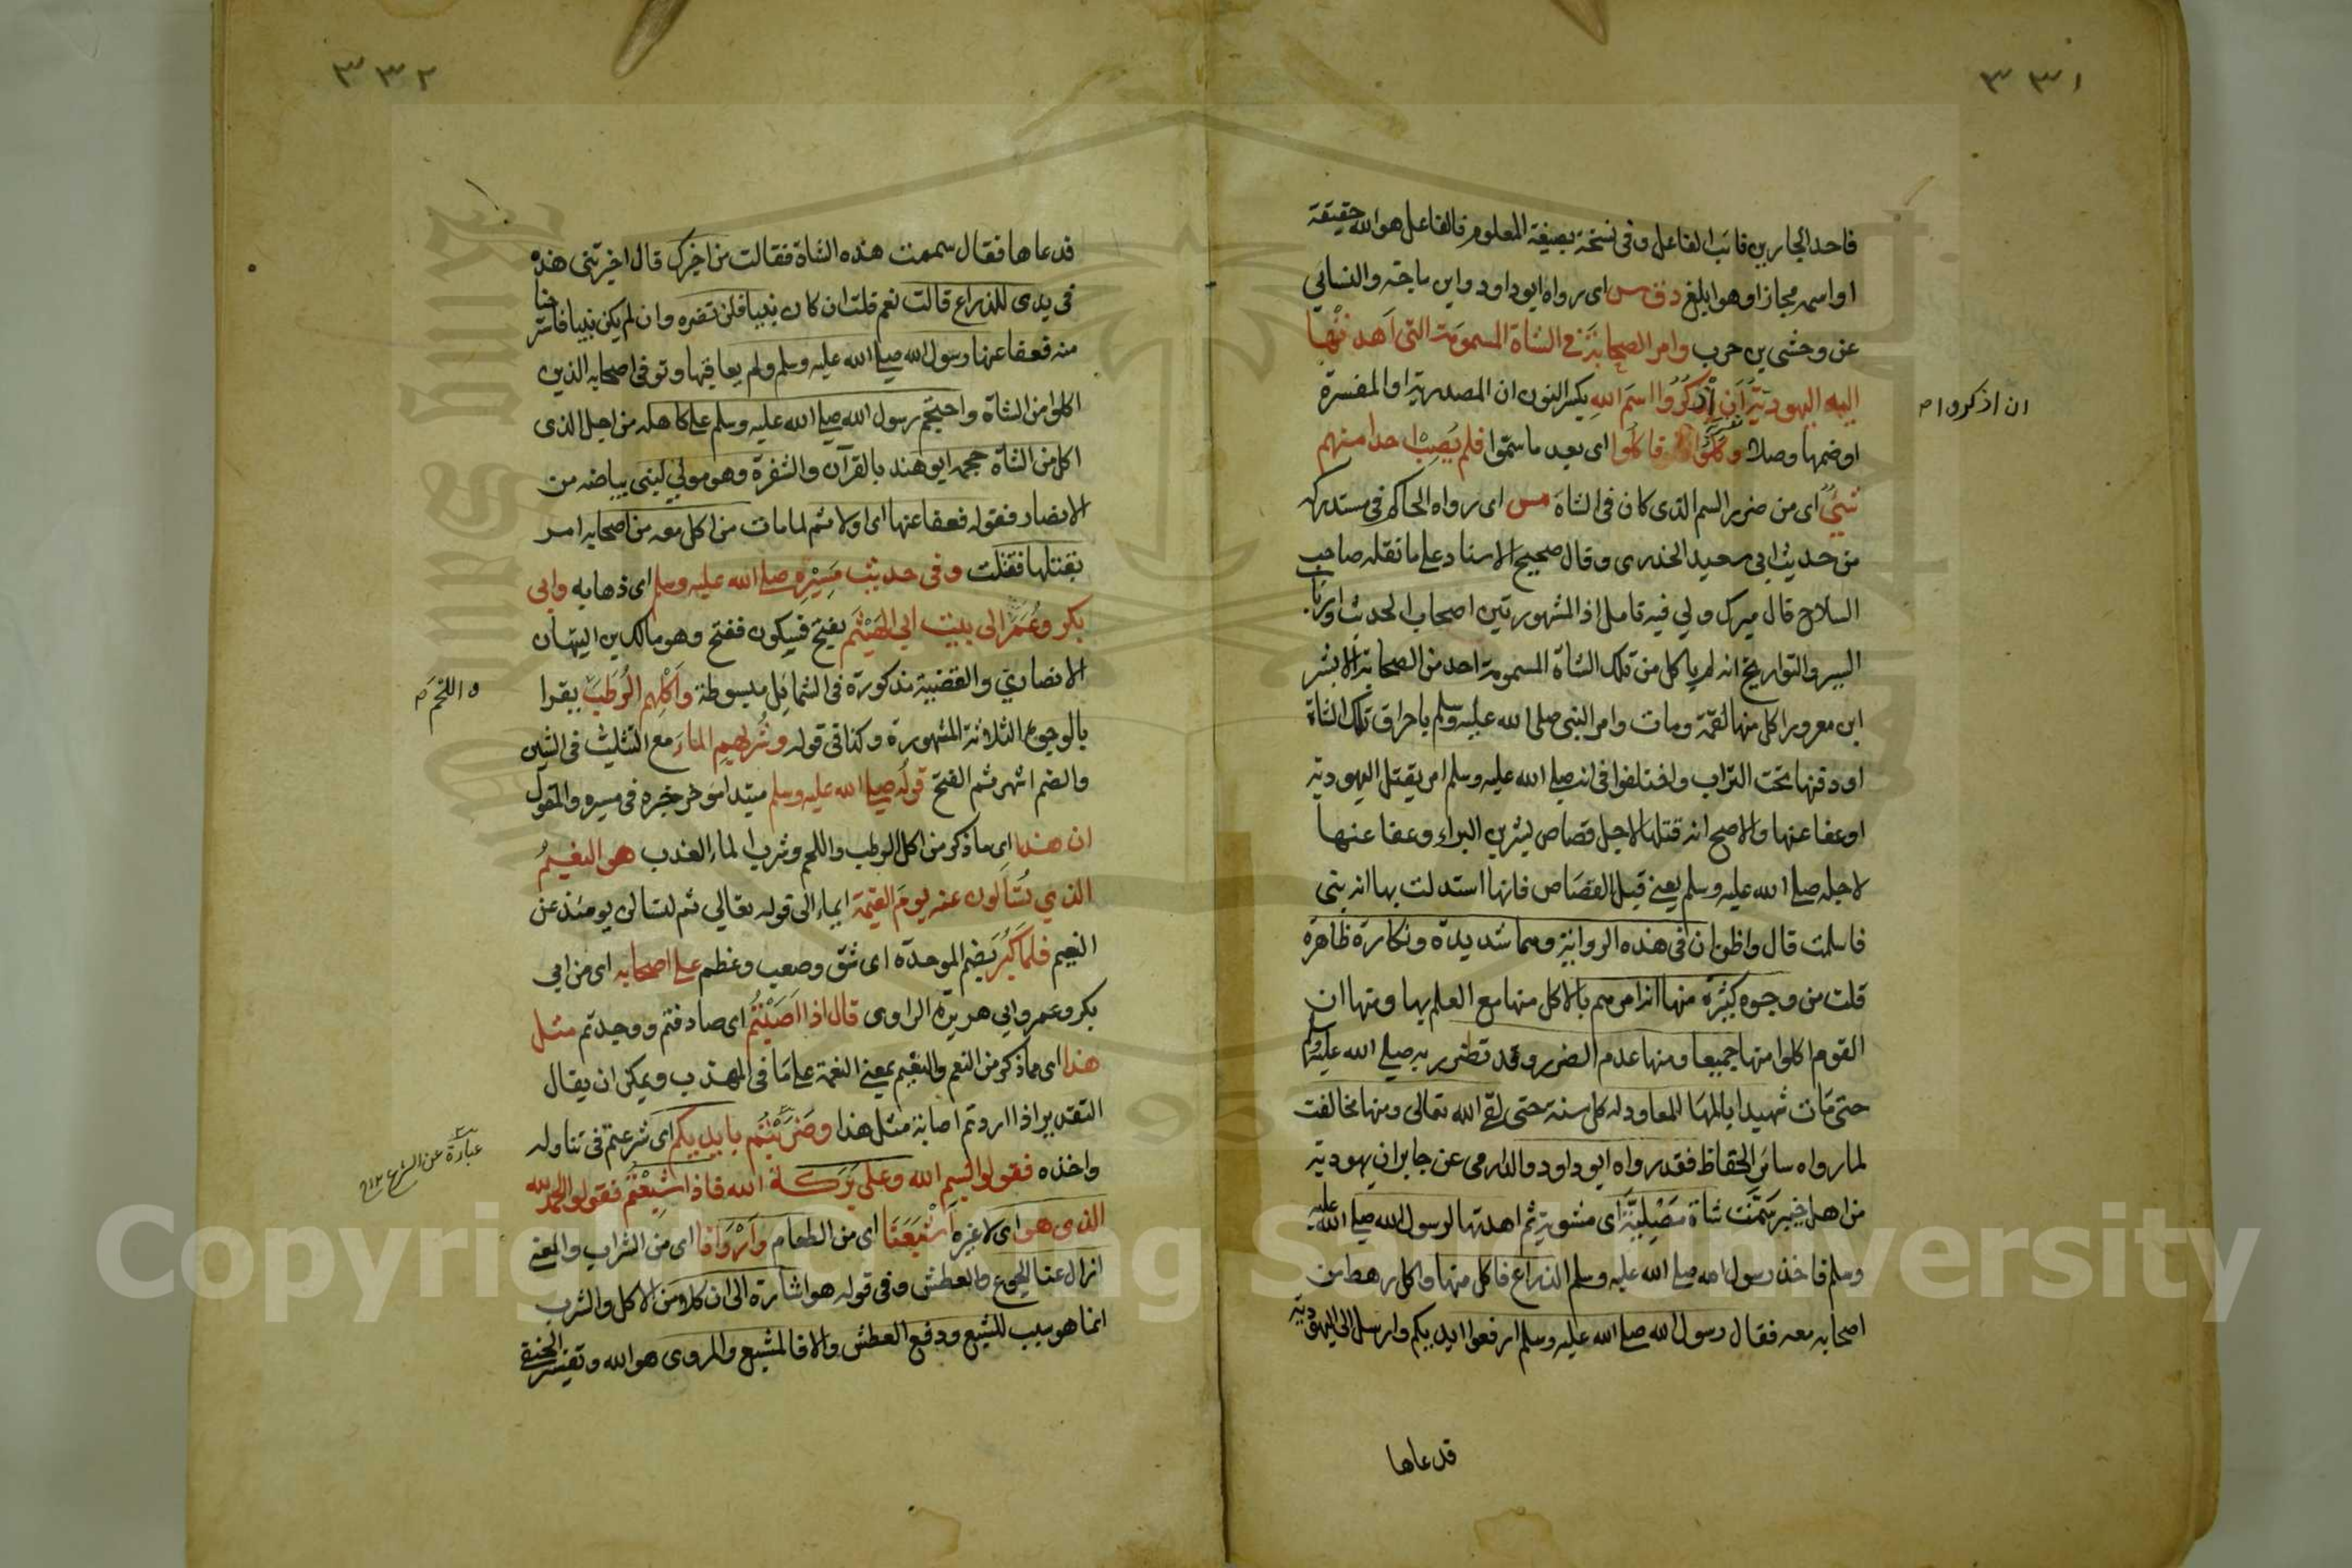 ٣٣١
فاحد الجارين نائب الفاعل وفى نسخة بصيغة المعلوم فالفاعل هو الله حقيقة
او اسمه مجازا وهو ابلغ د ق س اى رواه ابو داود وابن ماجة والنسائي
عن وحشى بن حرب وامر الصحابة في الشاة المسمومة التى اهدتها
اليه اليهودية ان اذكروا اسم الله بكسر النون ان المصدرية او المفسرة
ان اذكروا
او ضمها وصلا وكلوا فاكلوا اى بعد ما سموا فلم يصب احدا منهم
شئ اى من ضرر السم الذى كان فى الشاة مس اى رواه الحاكم فى مستدركه
من حديث ابي سعيد الخدرى وقال صحيح الاسناد على ما نقله صاحب
السلاح قال ميرك ولي فيه تامل اذ المشهور بين اصحاب الحديث وارباب
السير والتواريخ انه لم ياكل من تلك الشاة المسمومة احد من الصحابة الا بشر
ابن معرور اكل منها لقمة ومات وامر النبى صلى الله عليه وسلم باحراق تلك الشاة
او دفنها تحت التراب واختلفوا فى انه صلى الله عليه وسلم امر بقتل اليهودية
او عفا عنها والاصح انه قتلها لاجل قصاص بشر بن البراء وعفا عنها
لاجله صلى الله عليه وسلم يعنى قبل القصاص فانها استدلت بها انه بنى
فاسلمت قال واظن ان فى هذه الرواية وهما شديدة ونكارة ظاهرة
قلت من وجوه كثيرة منها انه امرهم بالاكل منها مع العلم بها ومنها ان
القوم اكلوا منها جميعا ومنها عدم الضرر وقد تضرر به صلى الله عليه وسلم
حتى مات شهيدا بالمها المعاود له كل سنة حتى لقى الله تعالى ومنها مخالفت
لما رواه سائر الحفاظ فقد رواه ابو داود والدارمى عن جابر ان يهودية
من اهل خيبر سمت شاة مصلية اى مشوية ثم اهدتها لرسول الله صلى الله عليه
وسلم فاخذ رسول الله صلى الله عليه وسلم الذراع فاكل منها واكل رهط من
اصحابه معه فقال رسول الله صلى الله عليه وسلم ارفعوا ايديكم وارسل الى اليهودية
فدعاها
٣٣٢
فدعاها فقال سممت هذه الشاة فقالت من اخبرك قال اخبرتنى هذه
فى يدى للذراع قالت نعم قلت ان كان نبيا فلن تضره وان لم يكن نبيا فاسترحنا
منه فعفا عنها رسول الله صلى الله عليه وسلم ولم يعاقبها وتوفى اصحابه الذين
اكلوا من الشاة واحتجم رسول الله صلى الله عليه وسلم على كاهله من اجل الذى
اكل من الشاة حجمه ابو هند بالقرآن والشفرة وهو مولي لبنى بياضه من
الانصار فقوله فعفا عنها اى اولا ثم لما مات من اكل معه من اصحابه امر
بقتلها فقتلت وفى حديث مسيره صلى الله عليه وسلم اى ذهابه وابى
بكر وعمر الى بيت ابي الهيثم بفتح فسكون ففتح وهو مالك بن التيهان
الانصاري والقضية مذكورة فى الشمائل مبسوطة واكلهم الرطب بقرا
واللحم
بالوجوه الثلاثة المشهورة وكذا فى قوله وشربهم الماء مع التثليث فى الشين
والضم اشهر ثم الفتح قوله صلى الله عليه وسلم مبتدا مؤخر خبره فى مسيره والمقول
ان هذا اى ما ذكر من اكل الرطب واللحم وشرب الماء العذب هو النعيم
الذي تسألون عنه يوم القيمة ايماء الى قوله تعالي ثم لتسالن يومئذ عن
النعيم فلما كبر بضم الموحدة اى شق وصعب وعظم على اصحابه اى من ابي
بكر وعمر وابي هريرة الراوى قال اذا اصبتم اى صادفتم ووجدتم مثل
هذا اى ما ذكر من النعم والنعيم بمعنى النعمة على ما فى المهذب ويمكن ان يقال
التقدير اذا اردتم اصابة مثل هذا وضربتم بايديكم اى شرعتم فى تناوله
عبارة عن الشرع
واخذه فقولوا بسم الله وعلى بركة الله فاذا شبعتم فقولوا الحمد لله
الذى هو اى لا غيره اشبعنا اى من الطعام واروانا اى من الشراب والمعنى
ازال عنا الجوع والعطش وفى قوله هو اشارة الى ان كلا من الاكل والشرب
انما هو سبب للشبع ودفع العطش والا فالمشبع والمروى هو الله وتفسير الحنفى
Copyright © King Saud University